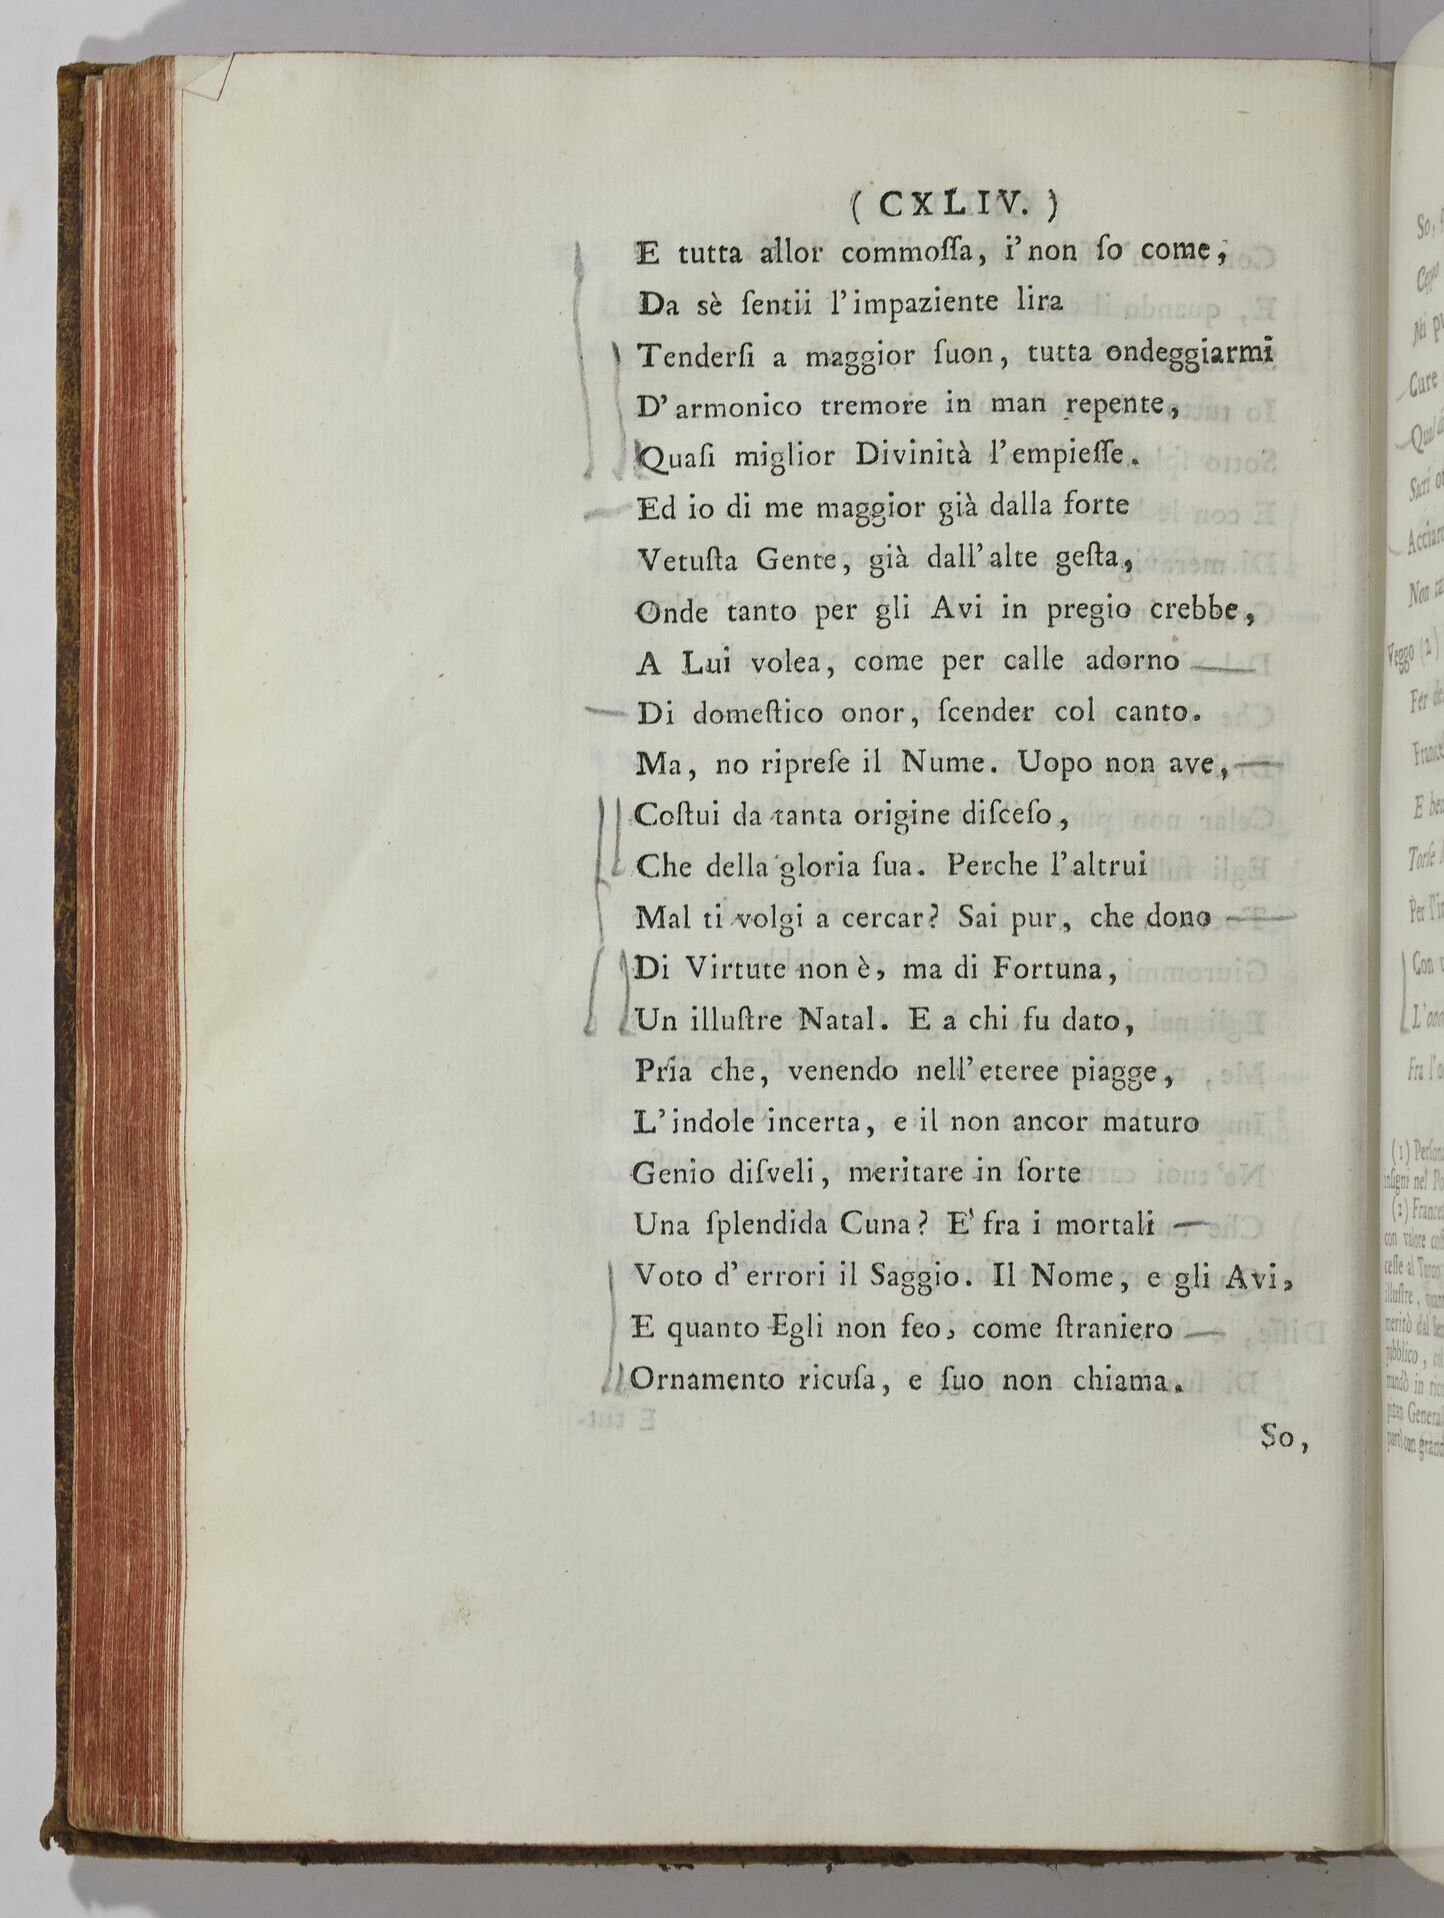 ( CXLIV. )
E tutta allor commoſſa, i' non ſo come,
Da sè ſentii l'impaziente lira
Tenderſi a maggior ſuon, tutta ondeggiarmi
D'armonico tremore in man repente,
Quaſi miglior Divinità l'empieſſe.
Ed io di me maggior già dalla forte
Vetuſta Gente, già dall'alte geſta,
Onde tanto per gli Avi in pregio crebbe,
A Lui volea, come per calle adorno
Di domeſtico onor, ſcender col canto.
Ma, no ripreſe il Nume. Uopo non ave,
Coſtui da tanta origine diſceſo,
Che della gloria ſua. Perche l'altrui
Mal ti volgi a cercar? Sai pur, che dono
Di Virtute non è, ma di Fortuna,
Un illuſtre Natal. E a chi fu dato,
Pria che, venendo nell'eteree piagge,
L'indole incerta, e il non ancor maturo
Genio diſveli, meritare in ſorte
Una ſplendida Cuna? E' fra i mortali
Voto d'errori il Saggio. Il Nome, e gli Avi,
E quanto Egli non feo, come ſtraniero
Ornamento ricuſa, e ſuo non chiama.
So,
So,
Nei
Cure
Sacri
Non
Veggo (2)
Fer
E
Torſe
Per
Con
L'
Fra
(1)
inſigni nel
(2)
con valore
ceſſe al Turco
illuſtre,
meritò dal
pubblico,
mandò in
General
con